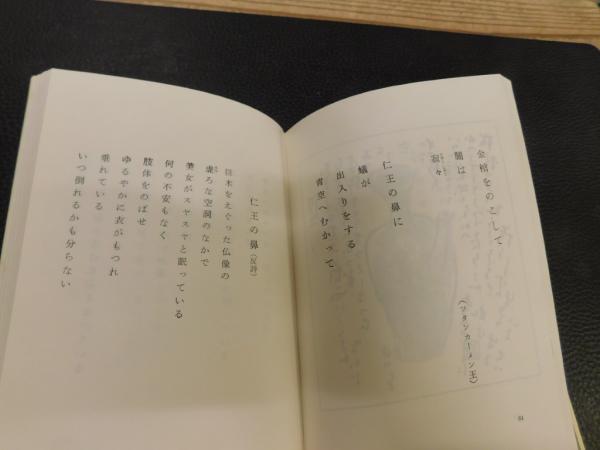 金棺をのこして
闇は
寂々
(ツタンカーメン王)
仁王の鼻に
蟻が
出入りをする
青空へむかって
84
仁王の鼻(反詩)
狂木をえぐった仏像の
虚ろな空洞のなかで
美女がスヤスヤと眠っている
何の不安もなく
肢体をのばせ
ゆるやかに衣がもつれ
垂れている
いつ倒れるかも分らない